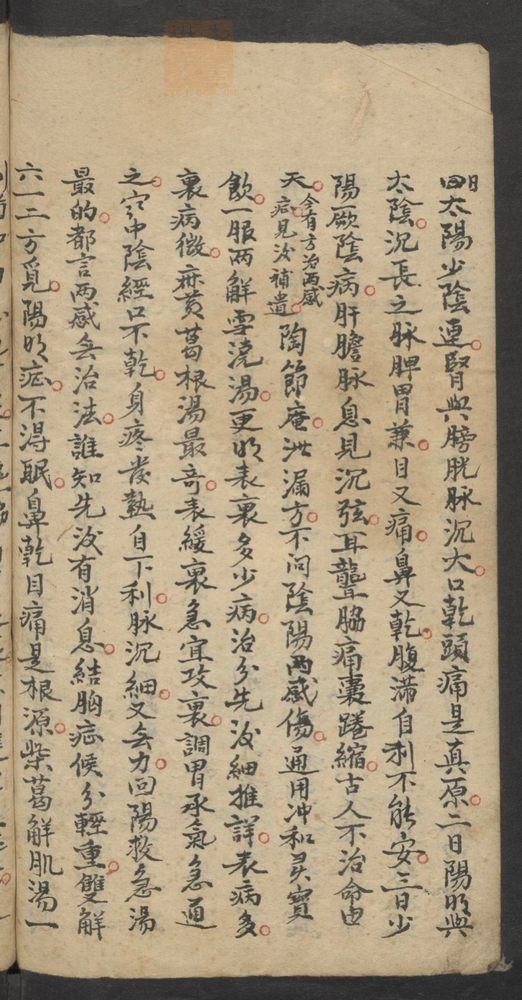 一日太陽少陰連腎與膀胱脉沉大口乾頭痛是真原二日陽明與
太陰沉長之脉脾胃兼目又痛鼻又乾腹滿自利不能安三日少
陽厥陰病肝膽脉息見沉弦耳聾脇痛囊踡縮古人不治命由
天今有方治兩感症見後補遺陶節庵泄漏方不問陰陽兩感傷通用冲和灵寶
飲一服兩解雪澆湯更明表裏多少病治分先後細推詳表病多
裏病微麻黄葛根湯最奇表緩裏急宜攻裏調胃承氣急通
之空中陰經口不乾身疼發熱自下利脉沉細又無力回陽救急湯
最的都言兩感無治法誰知先後有消息結胸症候分輕重雙解
六一二方覓陽明症不得眠鼻乾目痛是根源柴葛解肌湯一